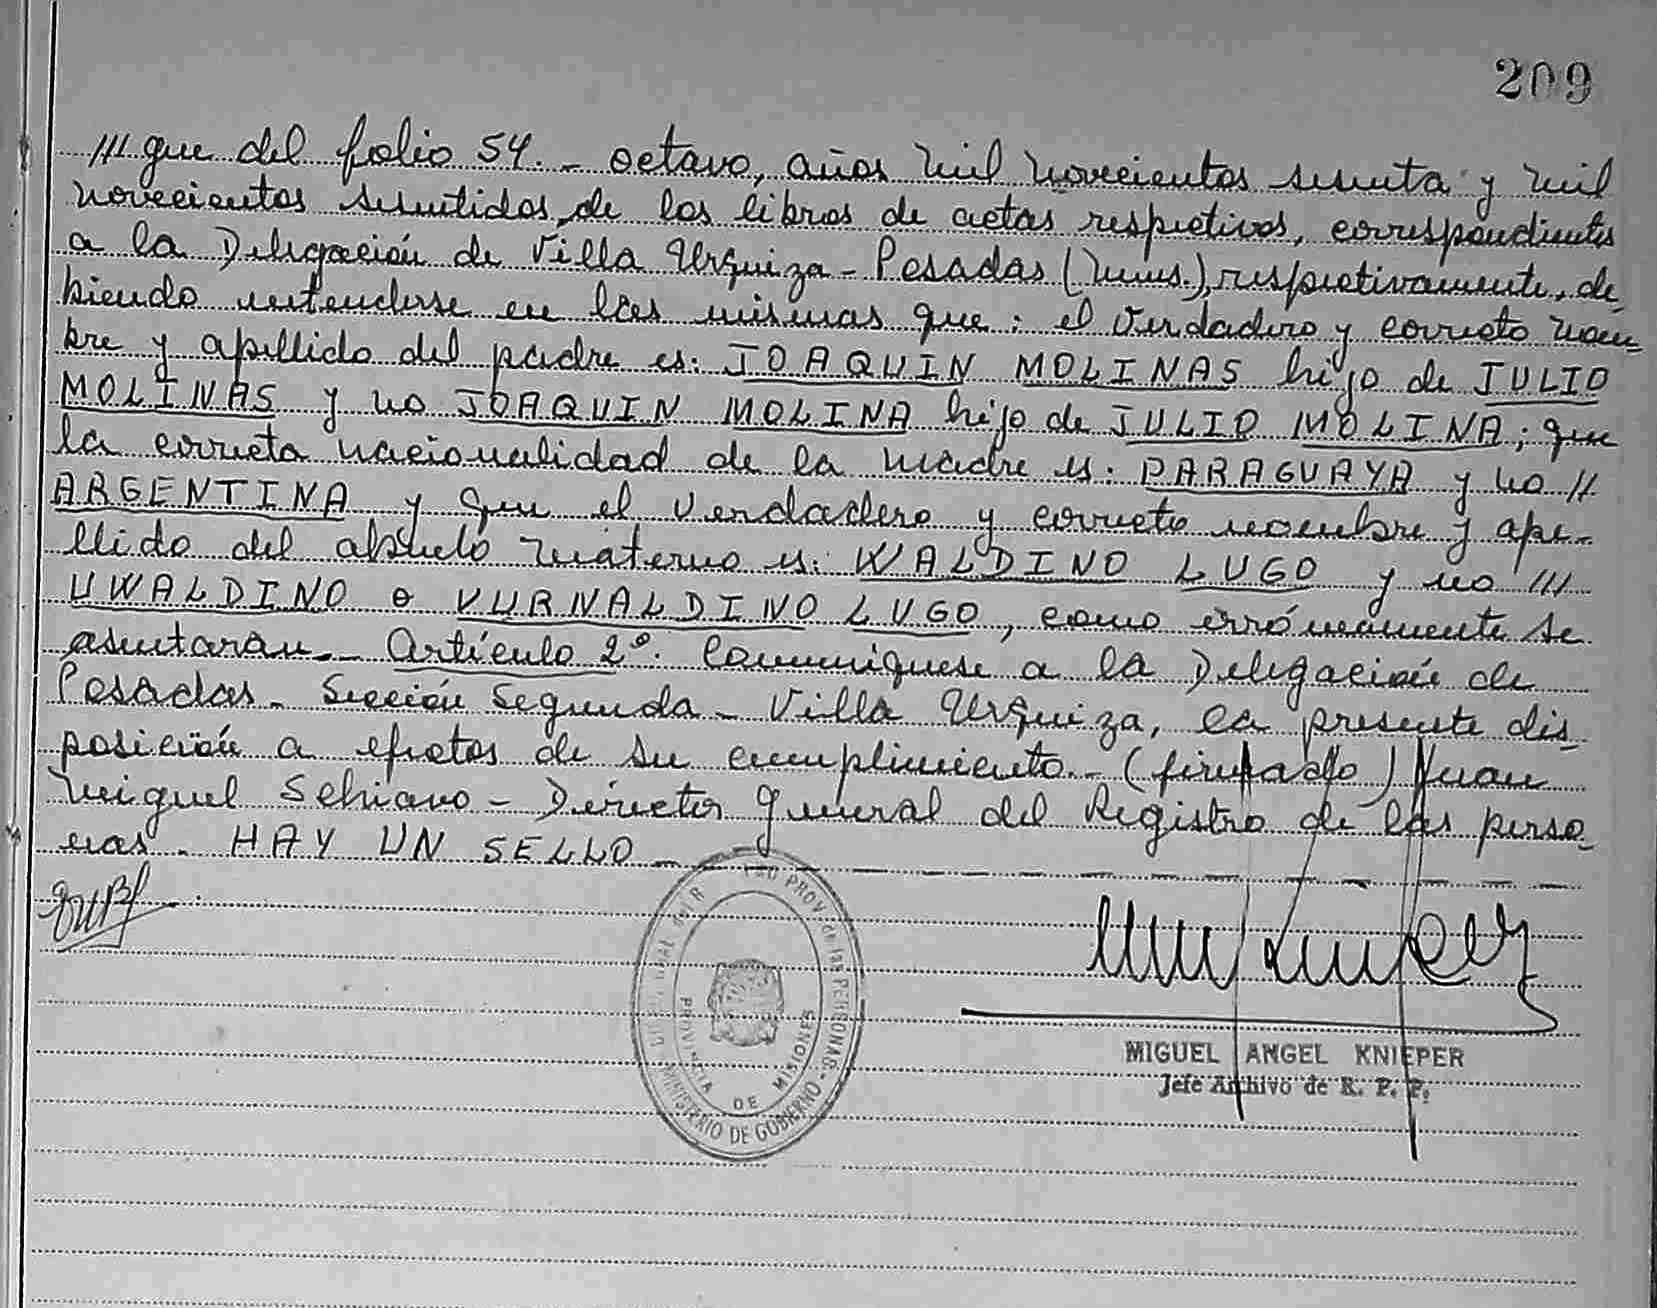 209
/// que del folio 54.- octavo, años mil novecientos sesenta y mil
novecientos sesentidos, de los libros de actas respectivos, correspondientes
a la Delegación de Villa Urquiza - Posadas (Mnes.), respectivamente, de-
biendo entenderse en las mismas que: el verdadero y correcto nom-
bre y apellido del padre es: JOAQUIN MOLINAS hijo de JULIO
MOLINAS y no JOAQUIN MOLINA hijo de JULIO MOLINA; que
la correcta nacionalidad de la madre es: PARAGUAYA y no //
ARGENTINA y que el verdadero y correcto nombre y ape-
llido del abuelo materno es: WALDINO LUGO y no ///
UWALDINO o VURNALDINO LUGO, como erróneamente se
asentaran.- Artículo 2º: Comuníquese a la Delegación de
Posadas - Sección Segunda - Villa Urquiza, la presente dis-
posición a efectos de su cumplimiento.- (firmado) Juan
Miguel Schiavo - Director General del Registro de las perso-
nas. HAY UN SELLO -
PROV. de las PERSONAS - MINISTERIO DE GOBIERNO
PROVINCIA DE MISIONES
MIGUEL ANGEL KNIEPER
Jefe Archivo de R. P. P.